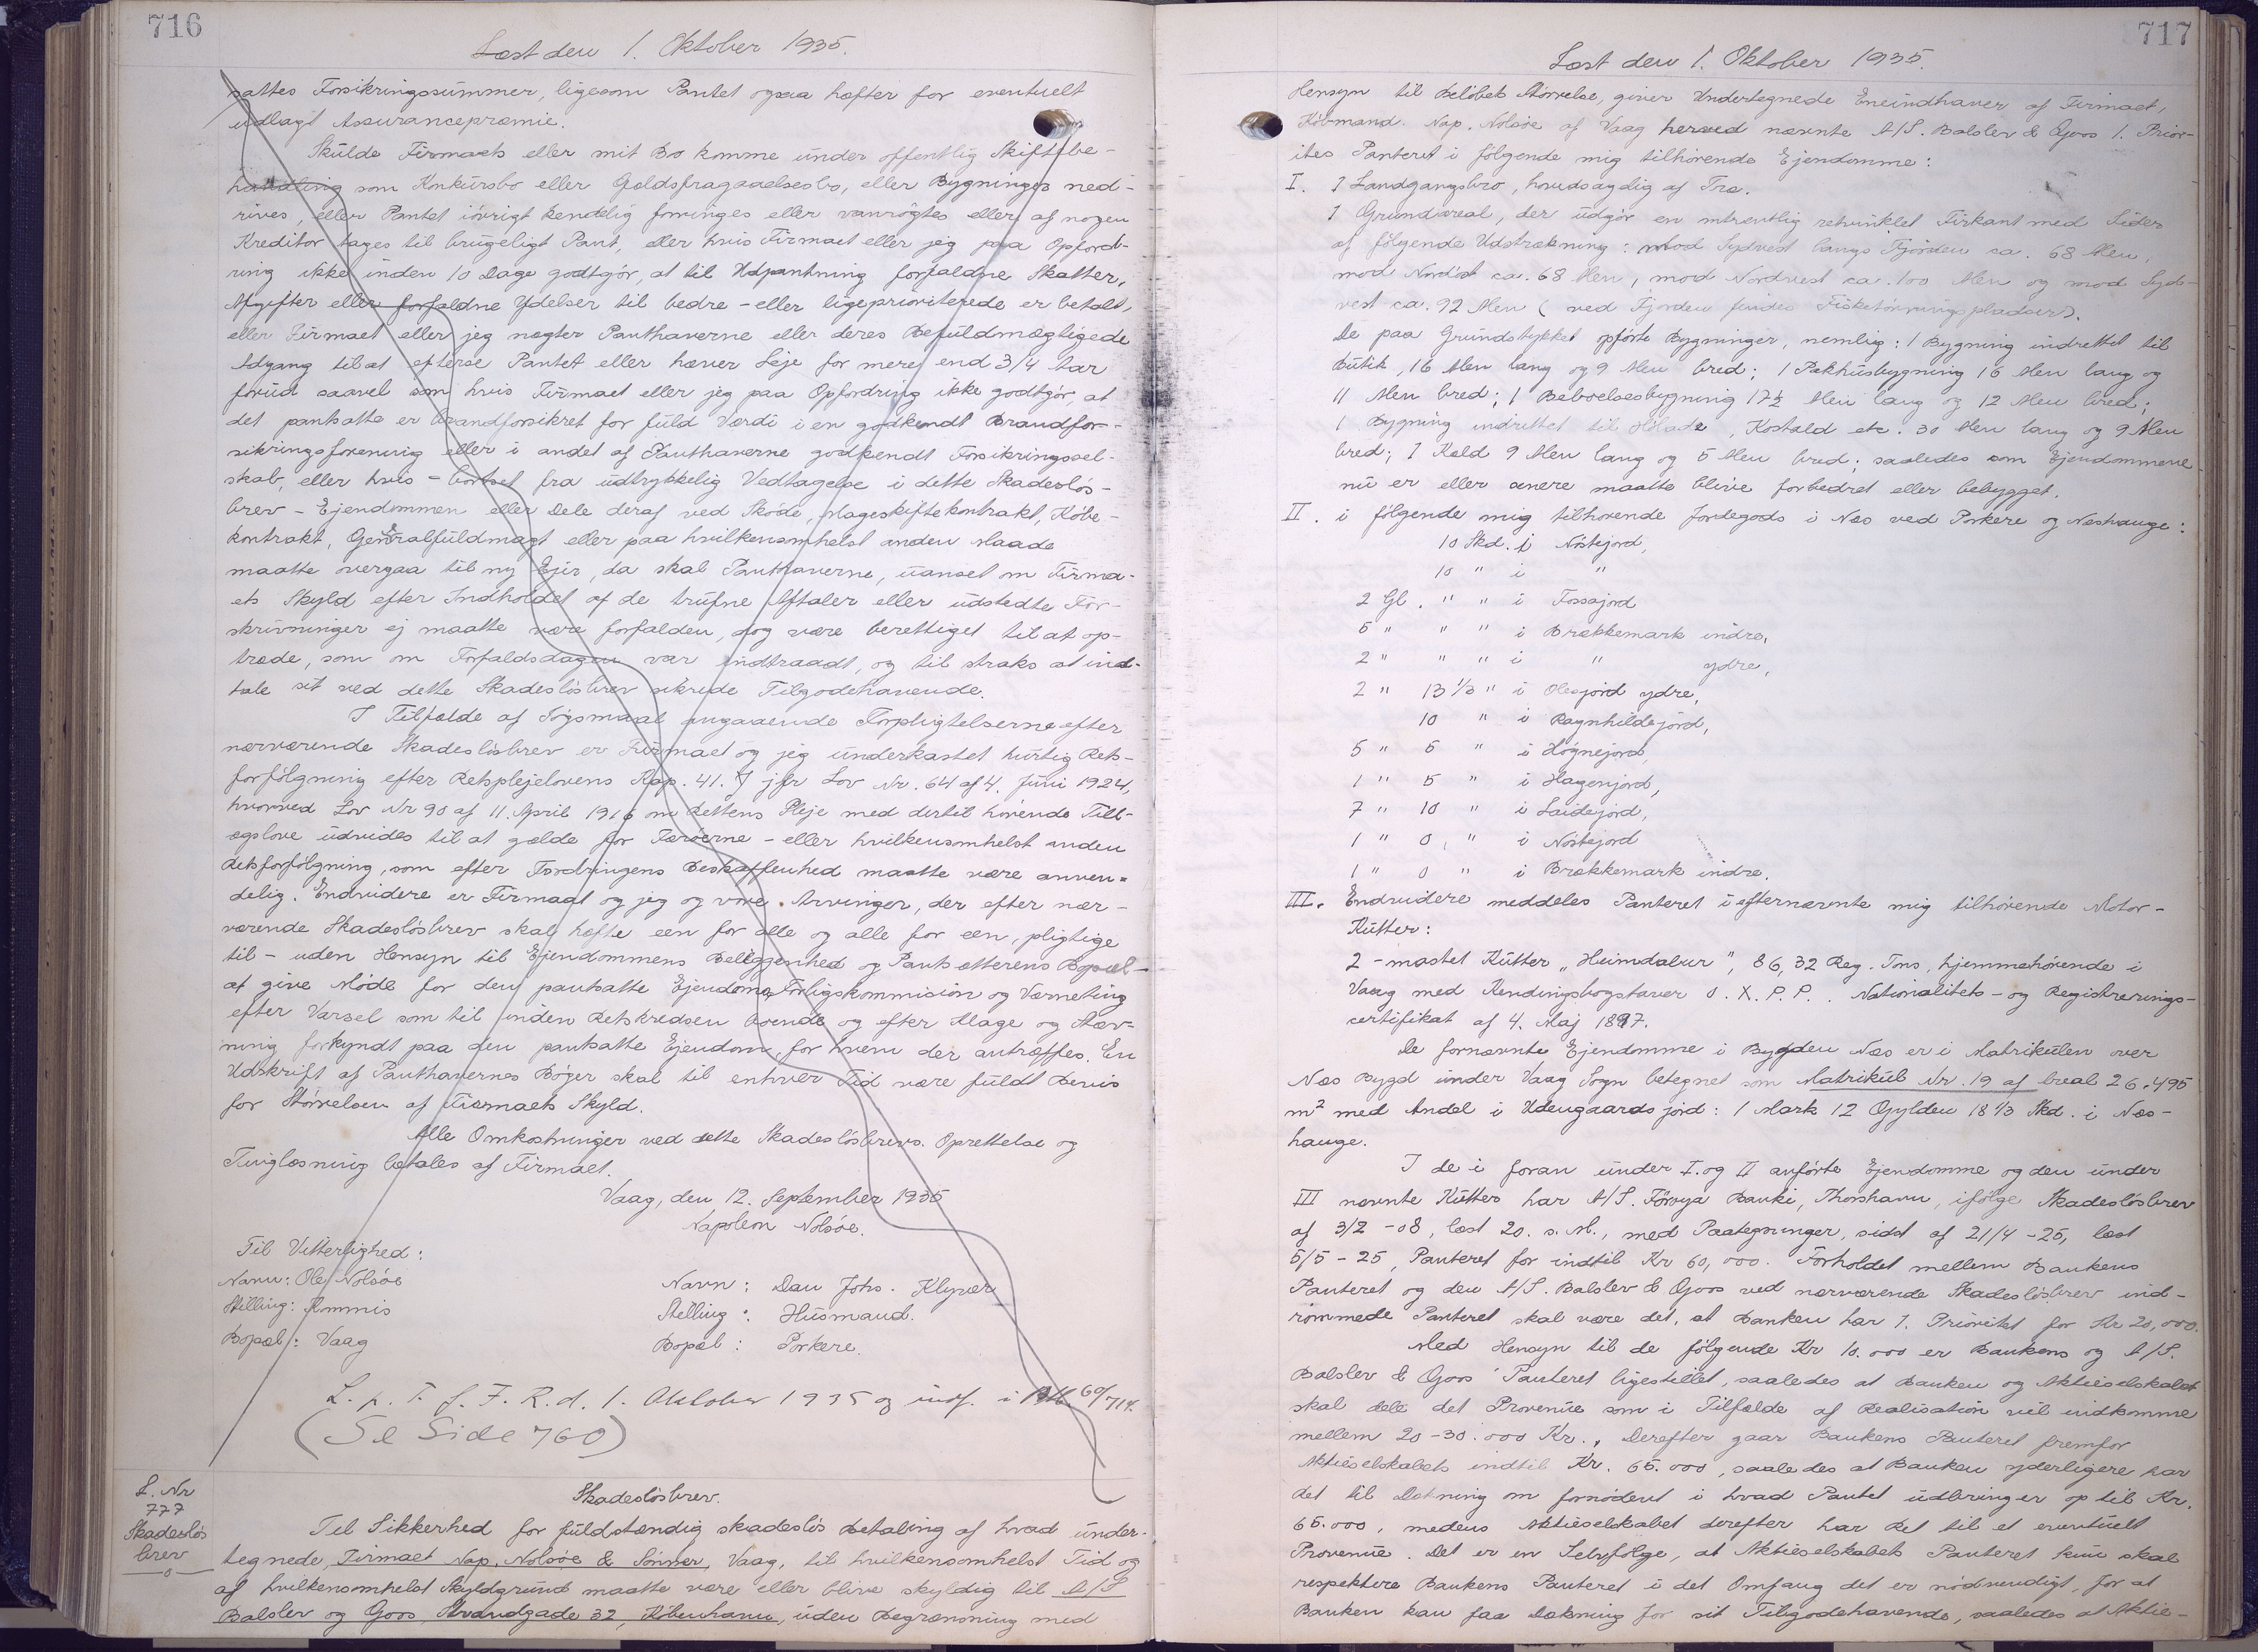 716
Læst den 1. Oktober 1935.
sattes Forsikringssummer, ligesom Pantet ogsaa hæfter for eventuelt
udlagt Assurancepræmie.
Skulde Firmaets eller mit Bo komme under offentlig Skiftebe-
handling som Konkursbo eller Gældsfragaaelsesbo, eller Bygninger ned-
rives, eller Pantet iövrigt kendelig forringes eller vanrögtes eller af nogen
Kreditor tages til brugeligt Pant, eller hvis Firmaet eller jeg paa Opford-
ring ikke inden 10 Dage godtgör, at til Udpantning forfaldne Skatter,
Afgifter eller forfaldne Ydelser til bedre - eller ligeprioriterede er betalt,
eller Firmaet eller jeg nægter Panthaverne eller deres Befuldmægtigede
Adgang til at efterse Pantet eller hæver Leje for mere end 3/4 Aar
forud saavel som hvis Firmaet eller jeg paa Opfordring ikke godtgör, at
det pantsatte er brandforsikret for fuld Værdi i en godkendt Brandfor-
sikringsforening eller i andet af Panthaverne godkendt Forsikringssel-
skab, eller hvis - bortset fra udtrykkelig Vedtagelse i dette Skadeslös-
brev - Ejendommen eller Dele deraf ved Sköde, Mageskiftekontrakt, Köbe-
kontrakt, Generalfuldmagt eller paa hvilkensomhelst anden Maade
maatte overgaa til ny Ejer, da skal Panthaverne, uanset om Firma-
ets Skyld efter Indholdet af de trufne Aftaler eller udstedte For-
skrivninger ej maatte være forfalden, dog være berettiget til at op-
træde, som om Forfaldsdagen var indtraadt, og til straks at ind-
tale sit ved dette Skadeslösbrev sikrede Tilgodehavende.
I Tilfælde af Sögsmaal angaaende Forpligtelserne efter
nærværende Skadeslösbrev er Firmaet og jeg underkastet hurtig Rets-
forfölgning efter Retsplejelovens Kap. 41. jfr Lov Nr. 64 af 4. Juni 1924,
hvorved Lov Nr 90 af 11. April 1916 om Rettens Pleje med dertil hörende Till-
ægslove udvides til at gælde for Færöerne - eller hvilkensomhelst anden
Retsforfölgning, som efter Fordringens Beskaffenhed maatte være anven-
delig. Endvidere er Firmaet og jeg og vore Arvinger, der efter nær-
værende Skadeslösbrev skal hæfte een for alle og alle for een, pligtige
til - uden Hensyn til Ejendommens Beliggenhed og Pantsætterens Bopæl -
at give Möde for den pantsatte Ejendoms Forligskommision og Værneting
efter Varsel som til inden Retskredsen boende og efter Klage og Stæv-
ning forkyndt paa den pantsatte Ejendom, for hvem der antræffes. En
Udskrift af Panthavernes Böger skal til enhver Tid være fuldt Bevis
for Störrelsen af Firmaets Skyld.
Alle Omkostninger ved dette Skadeslösbrevs Oprettelse og
Tinglæsning betales af Firmaet.
Vaag, den 12. September 1935
Napoleon Nolsöe.
Til Vitterlighed:
Navn: Ole Nolsöe
Navn: Dan Johs. Klyver
Stilling: Kommis
Stilling: Husmand.
Bopæl: Vaag
Bopæl: Porkere.
L. p. T. f. F. R. d. 1. Oktober 1935 og indf. i 60/714.
(Se Side 760)
L. Nr
777
Skadeslös
brev
Skadeslösbrev.
Til Sikkerhed for fuldstændig skadeslös Betaling af hvad under-
tegnede, Firmaet Nap. Nolsöe & Sönner, Vaag, til hvilkensomhelst Tid og
af hvilkensomhelst Skyldgrund maatte være eller blive skyldig til A/S
Balslev og Goos, Strandgade 32, Köbenhavn, uden Begrænsning med
717
Læst den 1. Oktober 1935.
Hensyn til Belöbets Störrelse, giver Undertegnede Eneindhaver af Firmaet,
Köbmand Nap. Nolsöe af Vaag herved nævnte A/S. Balslev & Goos 1. Prior-
itets Panteret i fölgende mig tilhörende Ejendomme:
I. 1 Landgangsbro, hovedsagelig af Træ.
1 Grundareal, der udgör en omtrentlig retvinklet Firkant med Sider
af fölgende Udstrækning: mod Sydvest langs Fjorden ca. 68 Alen,
mod Nordöst ca. 68 Alen, mod Nordvest ca. 100 Alen og mod Syd-
vest ca. 92 Alen (ved Fjorden findes Fisketörringspladser).
De paa Grundstykket opförte Bygninger, nemlig: 1 Bygning indrettet til
Butik, 16 Alen lang og 9 Alen bred; 1 Pakhusbygning 16 Alen lang og
11 Alen bred; 1 Beboelsesbygning 17½ Alen lang og 12 Alen bred;
1 Bygning indrettet til Hölade, Kostald etc. 30 Alen lang og 9 Alen
bred; 1 Kæld 9 Alen lang og 5 Alen bred; saaledes som Ejendommene
nu er eller senere maatte blive forbedret eller bebygget.
II. i fölgende mig tilhörende Jordegods i Næs ved Porkere og Næshauge:
10 Skd. i Nöstejord,
10 " i "
2 Gl. " " i Fossajord
5 " " " i Brækkemark indre,
2 " " " i " ydre,
2 " 13 1/3 " i Olesjord ydre,
10 " i Ragnhildejord,
5 " 5 " i Högnejord,
1 " 5 " i Hagenjord,
7 " 10 " i Laidejord,
1 " 0 " i Nöstejord
1 " 0 " i Brækkemark indre.
III. Endvidere meddeles Panteret i efternævnte mig tilhörende Motor-
Kutter:
2-mastet Kutter "Heimdalur", 86,32 Reg. Tns, hjemmehörende i
Vaag med Kendingsbogstaver O. X. P. P. Nationalitets- og Registrerings-
certifikat af 4. Maj 1897.
De fornævnte Ejendomme i Bygden Næs er i Matrikulen over
Næs Bygd under Vaag Sogn betegnet som Matrikul Nr. 19 af Areal 26.495
m² med Andel i Udengaards jord: 1 Mark 12 Gylden 18 1/3 Skd. i Næs-
hauge.
I de i foran under I. og II anförte Ejendomme og den under
III nævnte Kutter har A/S. Föroya Banki, Thorshavn, ifölge Skadeslösbrev
af 3/2 -08, læst 20. s. M., med Paategninger, sidst af 21/4 -25, læst
5/5 - 25, Panteret for indtil Kr 60,000. Forholdet mellem Bankens
Panteret og den A/S. Balslev & Goos ved nærværende Skadeslösbrev ind-
römmede Panteret skal være det, at Banken har 1. Prioritet for Kr 20,000.
Med Hensyn til de fölgende Kr 10.000 er Bankens og A/S.
Balslev & Goos' Panteret ligestillet, saaledes at Banken og Aktieselskabet
skal dele det Provenue som i Tilfælde af Realisation vil indkomme
mellem 20-30.000 Kr., Derefter gaar Bankens Panteret fremfor
Aktieselskabets indtil Kr. 65.000, saaledes at Banken yderligere har
det til Dækning om fornödent i hvad Pantet udbringer op til Kr.
65.000, medens Aktieselskabet derefter har Ret til et eventuelt
Provenue. Det er en Selvfölge, at Aktieselskabets Panteret kun skal
respektere Bankens Panteret i det Omfang det er nödvendigt, for at
Banken kan faa Dækning for sit Tilgodehavende, saaledes at Aktie-